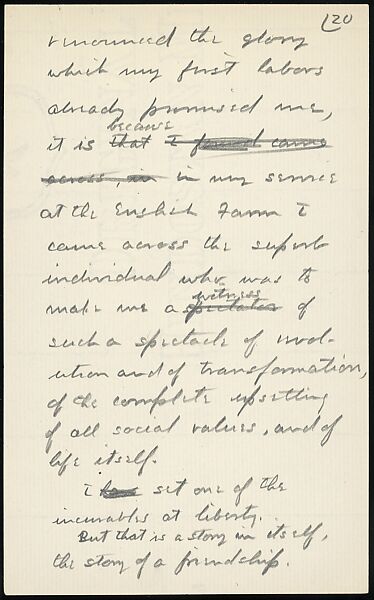 20
renounced the glory
which my first labors
already promised me,
because
it is that I found came
across, in in my service
at the English Farm I
came across the superb
individual who was to
witness
make me a spectator of
such a spectacle of revol-
ution and of transformation,
of the complete upsetting
of all social values, and of
life itself.
I have set one of the
incurables at liberty.
But that is a story in itself,
the story of a friendship.